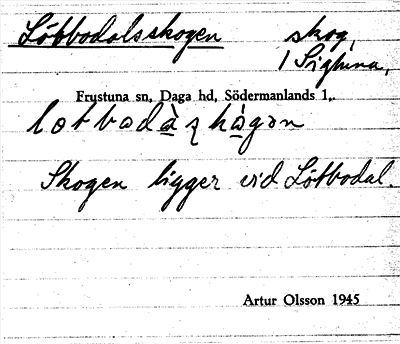 Lötbodalsskogen skog,
i Sighina,
Frustuna sn, Daga hd, Södermanlands l,.
lötbodàʒkågən
Skogen ligger vid Lötbodal.
Artur Olsson 1945